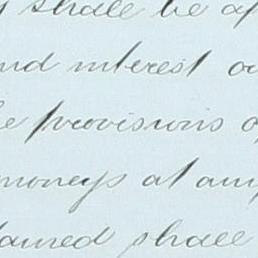 shall be
and interest
provisions
moneys at any
shall